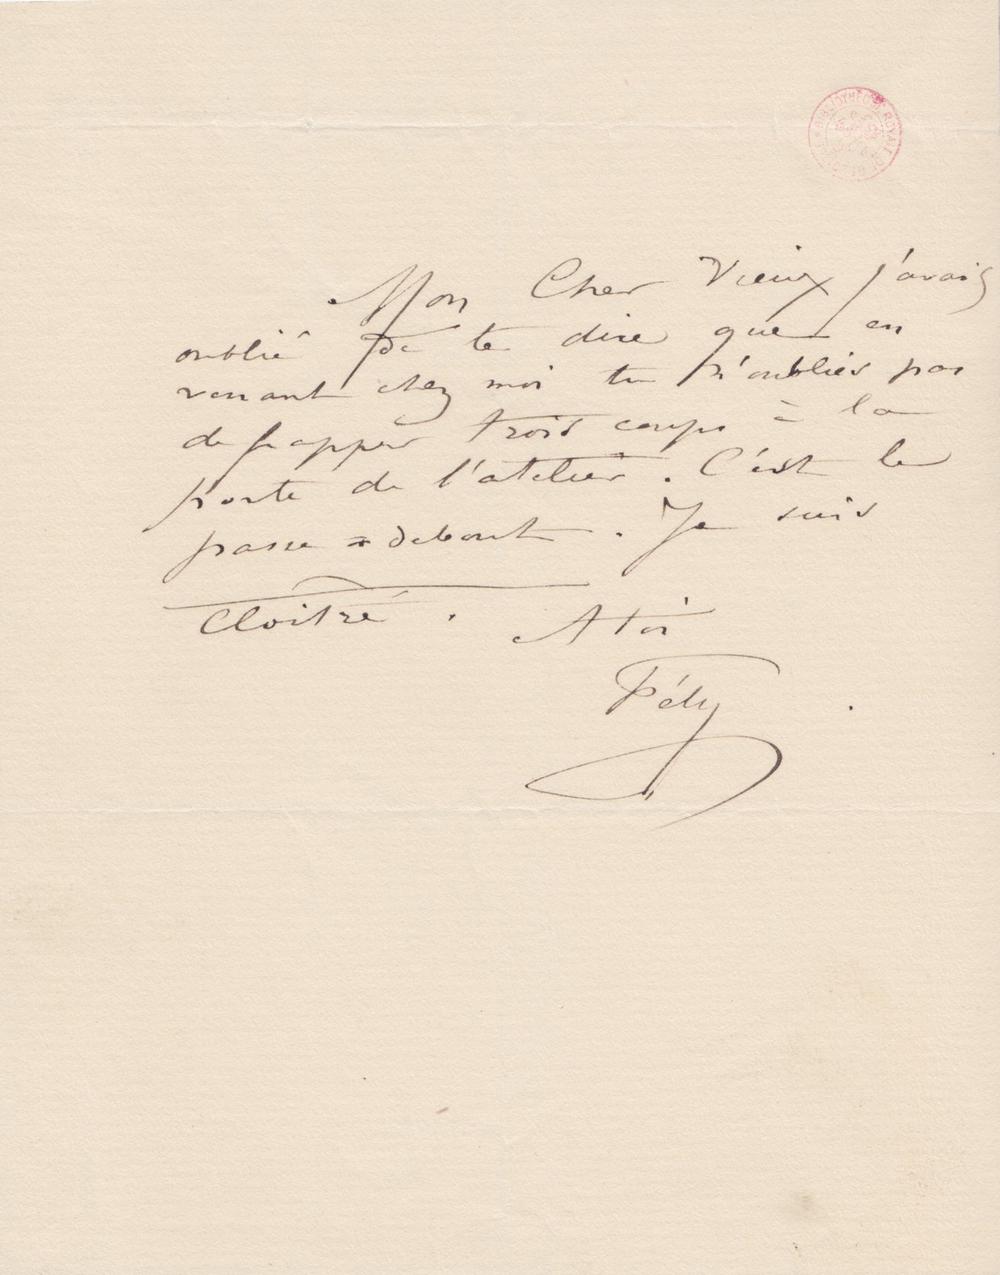 BIBLIOTHÈQUE ROYALE DE
Mon Cher Vieux j'avais
oublié de te dire que en
venant chez moi tu n'oublies pas
de frapper trois coups à la
porte de l'atelier. C'est le
passe = debout. Je suis
Cloîtré. A toi
Fély